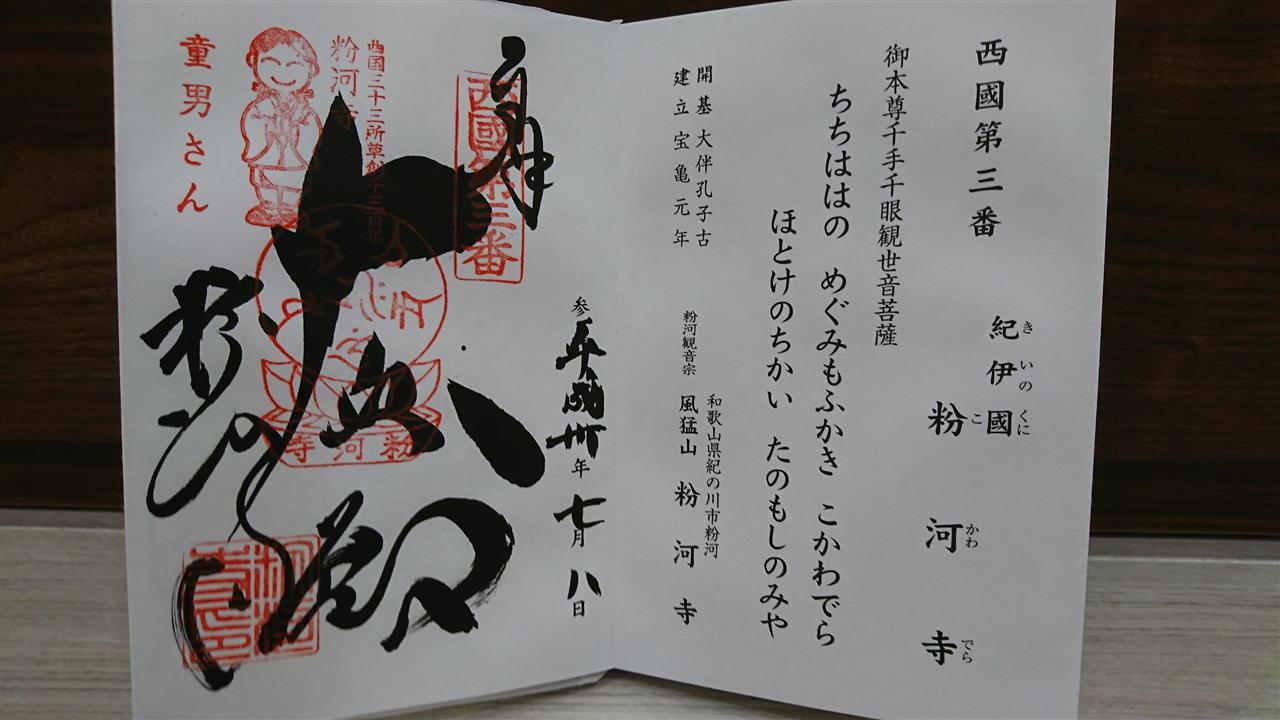 西國第三番
紀伊國
きいのくに
粉河寺
こかわでら
御本尊千手千眼観世音菩薩
ちちははの めぐみもふかき こかわでら
ほとけのちかい たのもしのみや
開基大伴孔子古
建立宝亀元年
和歌山県紀の川市粉河
粉河観音宗 風猛山 粉河寺
奉拝
平成卅年七月八日
西國第三番
大悲殿
西国三十三所草創千三百年
粉河寺
粉河寺
童男さん
粉河寺